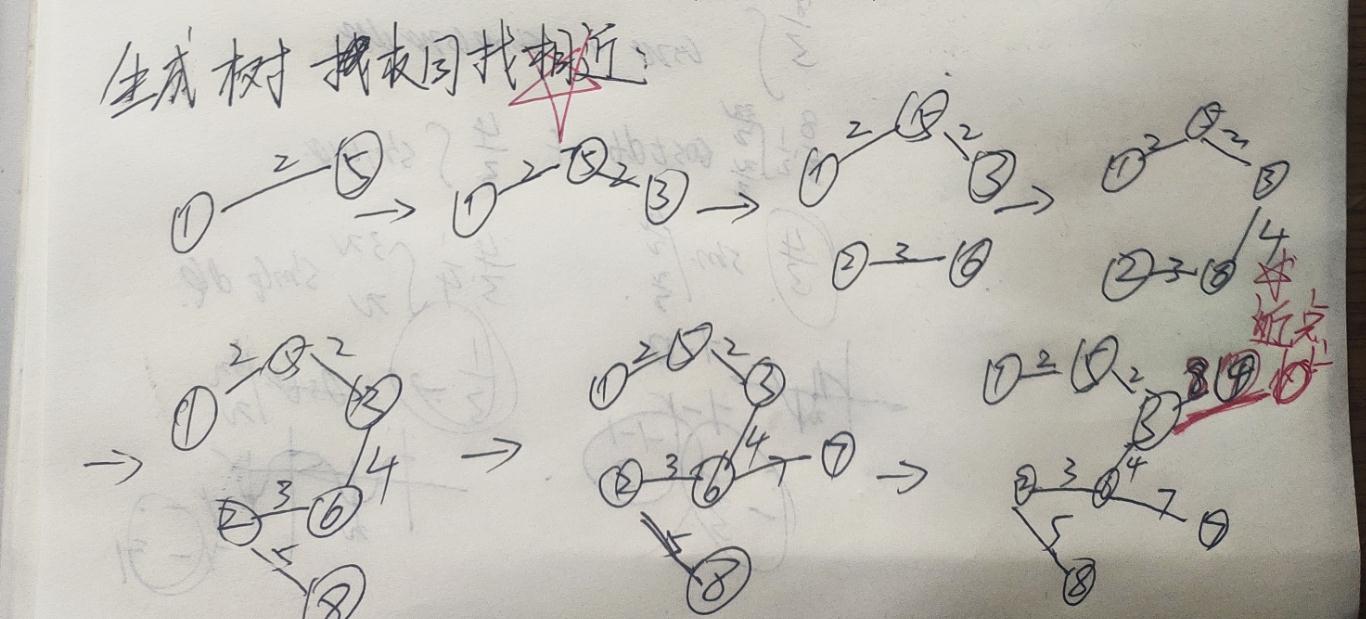 生成树 找权同找相近:
① 2 ⑤ → ① 2 ⑤ 2 ③ → ① 2 ⑤ 2 ③ → ① 2 ⑤ 2 ③
② 3 ⑥ ② 3 ⑥ 4
近点
→ ① 2 ⑤ 2 ③ → ① 2 ⑤ 2 ③ → ① 2 ⑤ 2 ③ 8 ④
② 3 ⑥ 4 ② 3 ⑥ 4 7 ⑦ ② 3 ⑥ 4 7 ⑦
5 ⑧ 5 ⑧ 5 ⑧